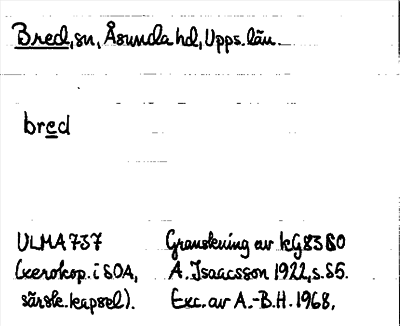 Bred, sn, Åsunda hd, Upps. län.
bred
ULMA 737 Granskning av kG8380
(xerokop. i SOA, A. Isaacsson 1922, s. 85.
särsk. kapsel). Exc. av A.-B.H. 1968.